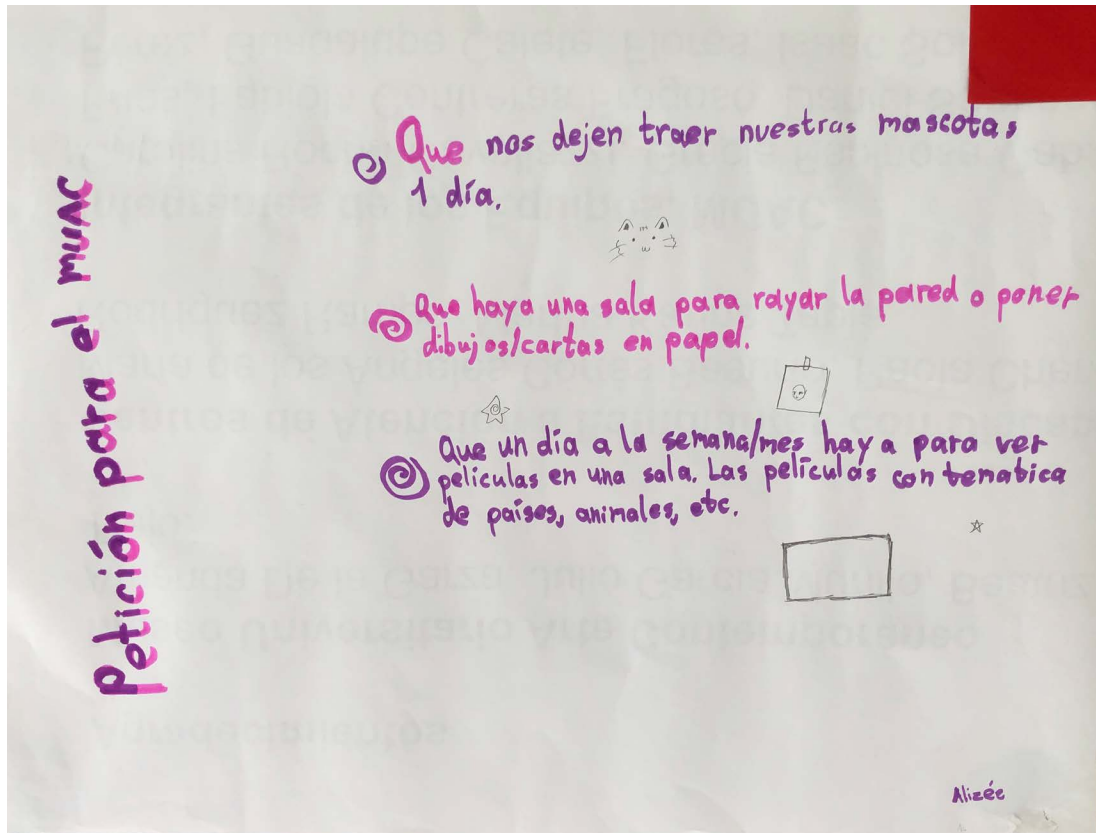 Petición para el munc
Que nos dejen traer nuestras mascotas
1 día.
Que haya una sala para rayar la pared o poner
dibujos/cartas en papel.
Que un día a la semana/mes haya para ver
películas en una sala. Las películas con tematica
de países, animales, etc.
Alizée